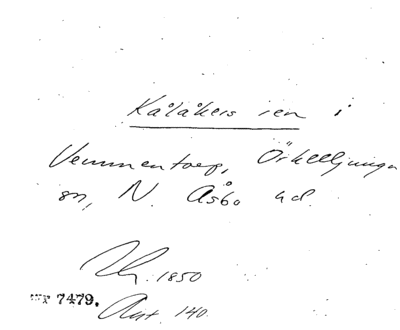 Kålåkers ren i
Vemmentorp, Örkelljunga
sn, N. Åsbo hd.
1850
7479.
Ant. 140.